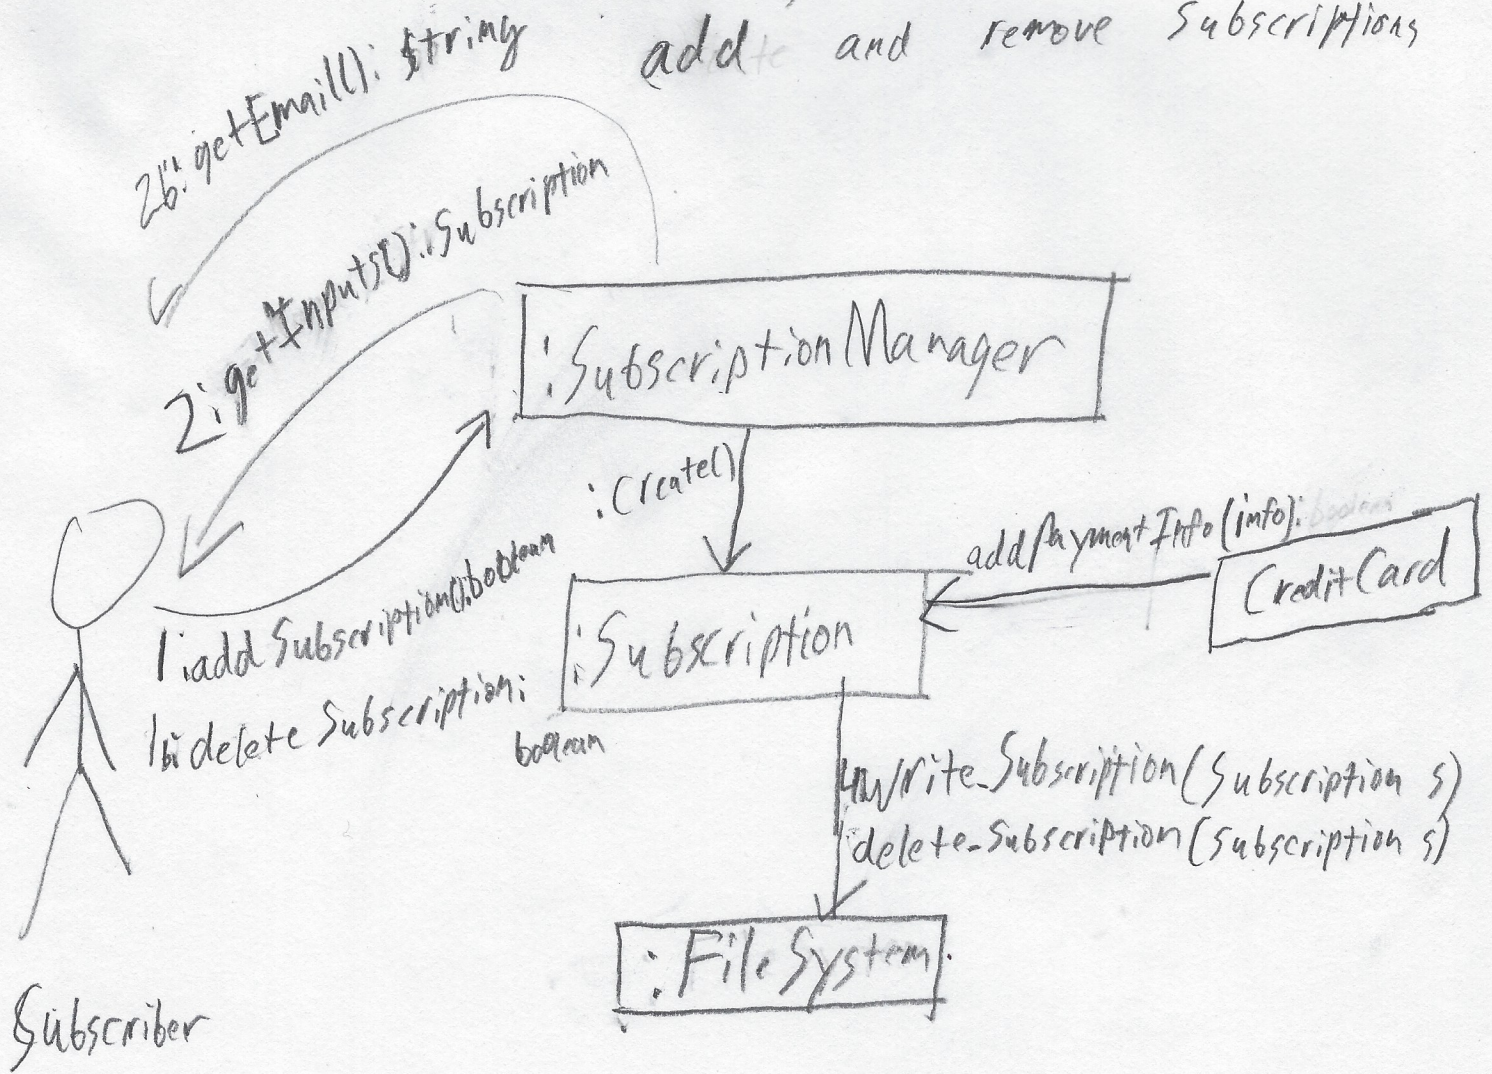 add and remove Subscriptions
2b: getEmail(): String
2: getInputs(): Subscription
:SubscriptionManager
:Create()
addPaymentInfo(info): boolean
CreditCard
1: addSubscription(): boolean
:Subscription
1b: deleteSubscription:
boolean
write_Subscription(Subscription s)
delete_Subscription(Subscription s)
:FileSystem
Subscriber